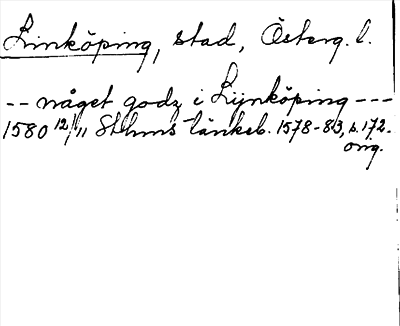 Linköping, stad, Österg. l.
-- något godz i Lijnköping ---
1580 12/11 Sthms tänkeb. 1578-83, s. 172.
orig.